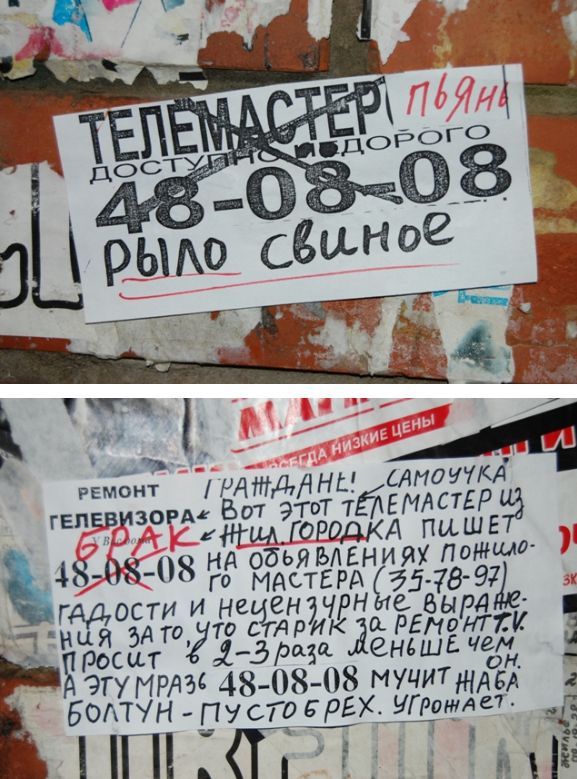 ТЕЛЕМАСТЕР ПЬЯНЬ
ДОСТУПНО НЕДОРОГО
48-08-08
РЫЛО СВИНОЕ
ВСЕГДА НИЗКИЕ ЦЕНЫ
РЕМОНТ ГРАЖДАНЕ! САМОУЧКА
ТЕЛЕВИЗОРА ВОТ ЭТОТ ТЕЛЕМАСТЕР ИЗ
БРАК ЖИЛ. ГОРОДКА ПИШЕТ
48-08-08 НА ОБЪЯВЛЕНИЯХ ПОЖИЛО-
ГО МАСТЕРА (35-78-97)
ГАДОСТИ И НЕЦЕНЗУРНЫЕ ВЫРАЖЕ-
НИЯ ЗА ТО, ЧТО СТАРИК ЗА РЕМОНТ T.V.
ПРОСИТ В 2-3 РАЗА МЕНЬШЕ ЧЕМ ОН.
А ЭТУ МРАЗЬ 48-08-08 МУЧИТ ЖАБА
БОЛТУН - ПУСТОБРЕХ. УГРОЖАЕТ.